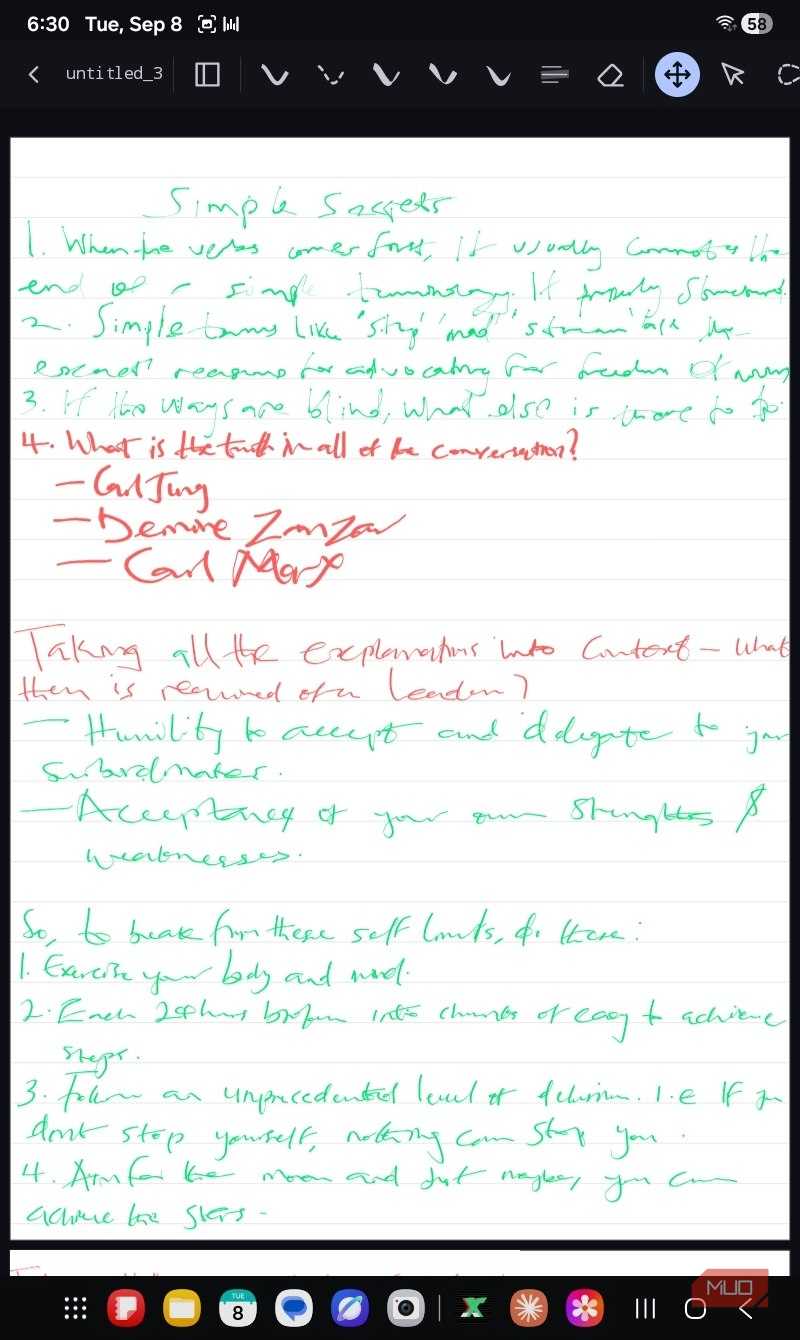 6:30 Tue, Sep 8 58
untitled_3
Simple
1. When the verbs comes first, it usually connotes the
end of a simple terminology. If properly
2. Simple terms like 'stop' 'mad' 'stream' are the
reasons for advocating for freedom of
3. If the ways are blind, what else is there to
4. What is the truth in all of the conversation?
- Carl Jung
- Zanzar
- Carl Marx
Taking all the explanations into Context - What
then is required of a Leader?
- Humility to accept and delegate to your
subordinates.
- Acceptance of your own Strenghts &
weaknesses.
So, to break from these self limits, do these:
1. Exercise your body and mind.
2. Each 24hours broken into chunks of easy to achieve
steps.
3. an unprecedented level of delusion. I.E If you
dont stop yourself, nothing can stop you.
4. Aim for the moon and just maybe, you can
achieve the stars.
TUE
8
MUO